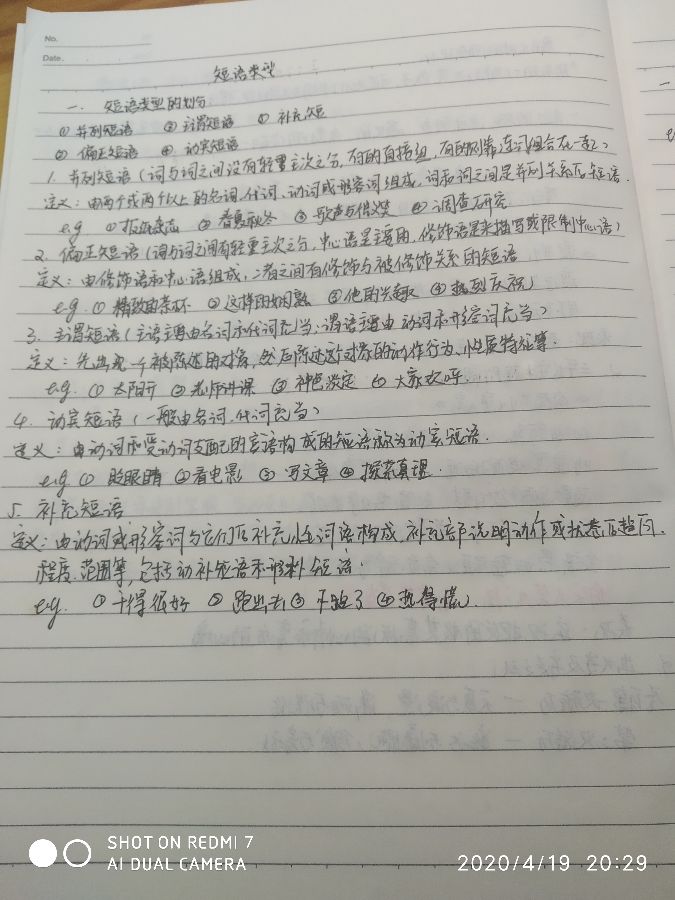 No.
Date.
短语类型
一、短语类型的划分
① 并列短语 ② 主谓短语 ③ 补充短
② 偏正短语 ④ 动宾短语
1. 并列短语(词与词之间没有轻重主次之分,有的直接组,有的则靠连词组合在一起)
定义:由两个或两个以上的名词、代词、动词或形容词组成,词和词之间是并列关系的短语.
e.g. ① 报纸杂志 ② 春夏秋冬 ③ 歌声与微笑 ④ 调查研究
2. 偏正短语(词与词之间有轻重主次之分,中心语是主要的,修饰语是来描写或限制中心语)
定义:由修饰语和中心语组成,二者之间有修饰与被修饰关系的短语
e.g. ① 精致的茶杯 ② 这样的娴熟 ③ 他的兴趣 ④ 热烈庆祝
3. 主谓短语(主语主要由名词和代词充当;谓语主要由动词和形容词充当)
定义:先出现一个被陈述的对象,然后陈述这个对象的动作行为、性质特征等.
e.g. ① 太阳升 ② 老师讲课 ③ 神色淡定 ④ 大家欢呼.
4. 动宾短语(一般由名词、代词充当)
定义:由动词和受动词支配的宾语构成的短语称为动宾短语.
e.g. ① 眨眼睛 ② 看电影 ③ 写文章 ④ 探索真理.
5. 补充短语
定义:由动词或形容词与它们后补充性词语构成,补充部说明动作或状态后趋向、
程度、范围等,包括动补短语和形补短语.
e.g. ① 干得很好 ② 跑出去 ③ 不跑了 ④ 热得慌.
SHOT ON REDMI 7
AI DUAL CAMERA
2020/4/19 20:29